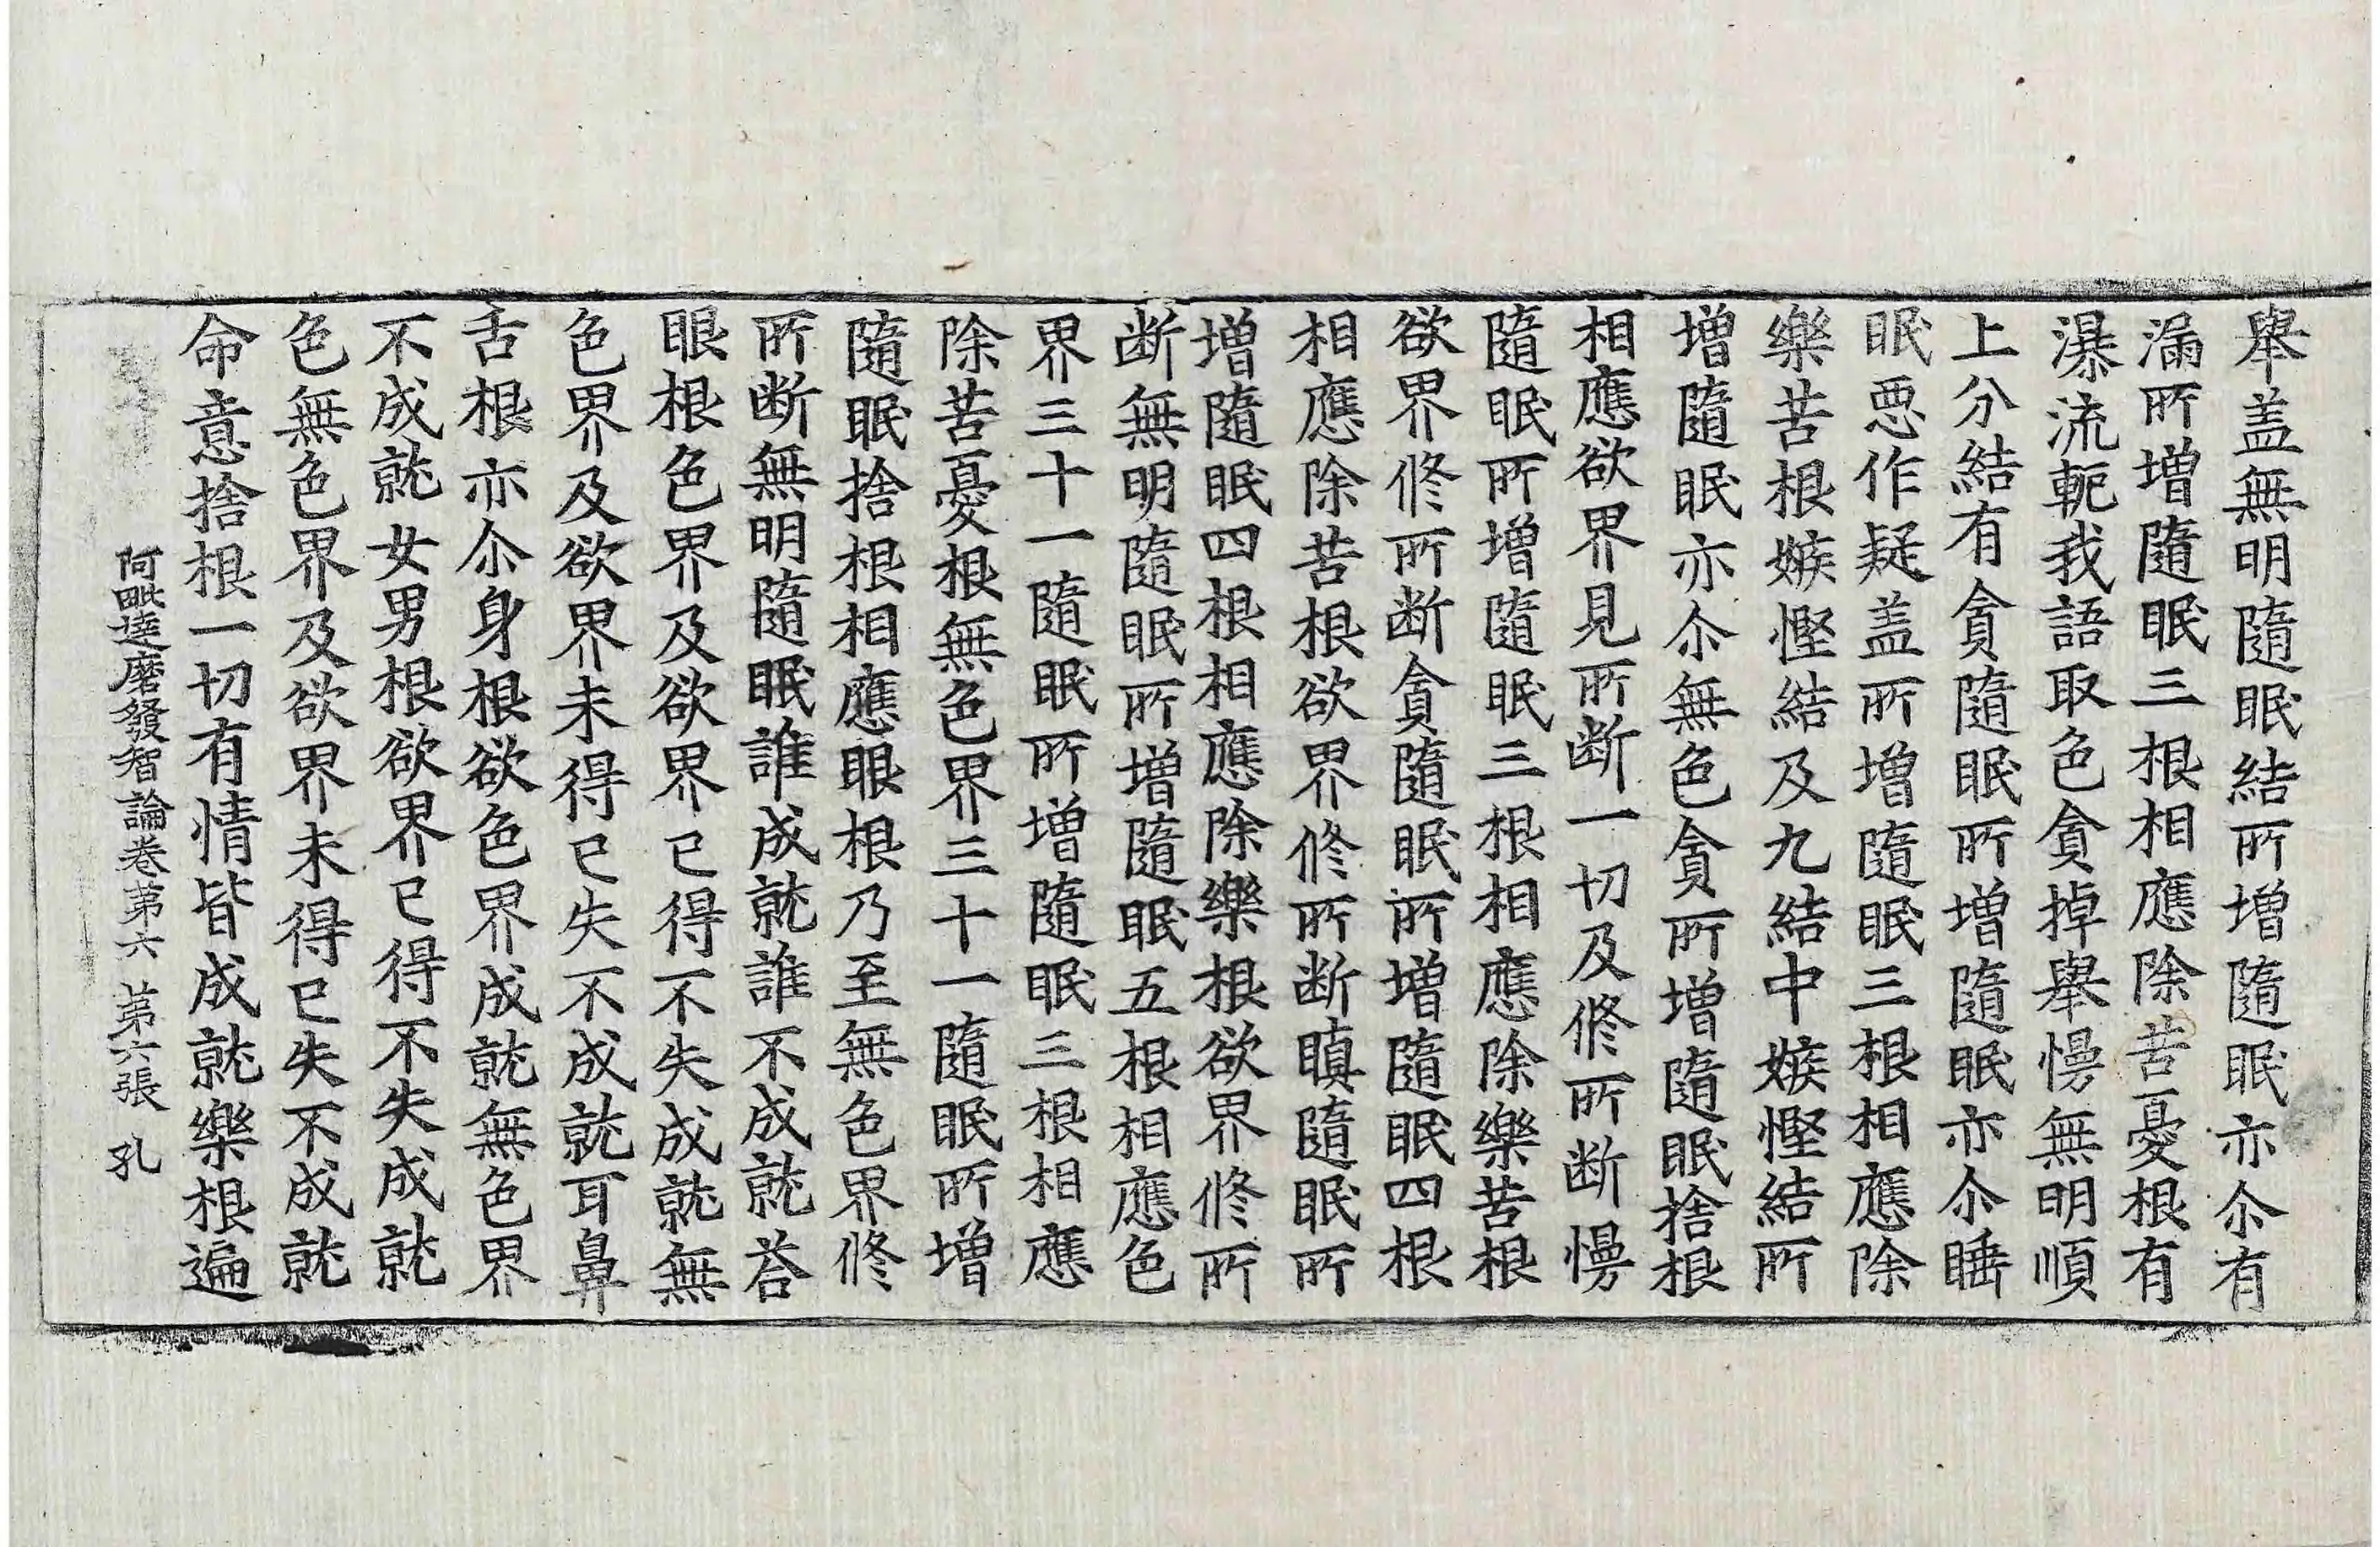 舉盖無明隨眠結所增隨眠亦尒有
漏所增隨眠三根相應除苦憂根有
瀑流軛我語取色貪掉舉慢無明順
上分結有貪隨眠所增隨眠亦尒睡
眠惡作疑盖所增隨眠三根相應除
樂苦根嫉慳結及九結中嫉慳結所
增隨眠亦尒無色貪所增隨眠捨根
相應欲界見所断一切及修所断慢
隨眠所增隨眠三根相應除樂苦根
欲界修所断貪隨眠所增隨眠四根
相應除苦根欲界修所断瞋隨眠所
增隨眠四根相應除樂根欲界修所
断無明隨眠所增隨眠五根相應色
界三十一隨眠所增隨眠三根相應
除苦憂根無色界三十一隨眠所增
隨眠捨根相應眼根乃至無色界修
所断無明隨眠誰成就誰不成就荅
眼根色界及欲界已得不失成就無
色界及欲界未得已失不成就耳鼻
舌根亦尒身根欲色界成就無色界
不成就女男根欲界已得不失成就
色無色界及欲界未得已失不成就
命意捨根一切有情皆成就樂根遍
阿毗達磨發智論卷第六 第六張 孔